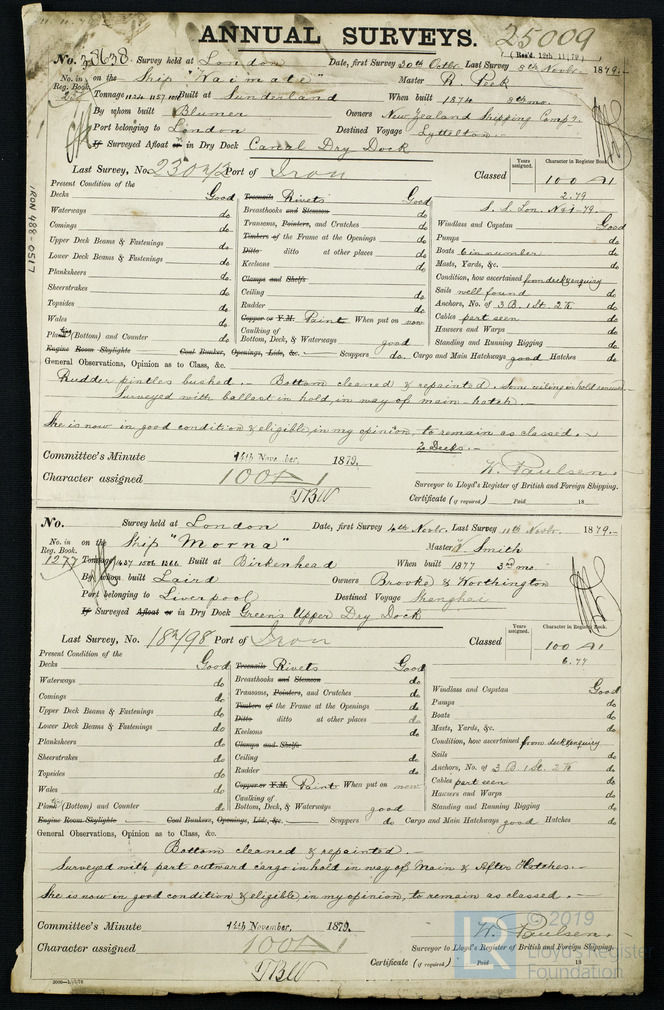 ANNUAL SURVEYS. 25009
(Rec'd. 12th 11, 79)
No. 38638 Survey held at London Date, first Survey 30th Octbr Last Survey 8th Novbr 1879.-
No. in Reg. Book. on the Ship "Waimate" Master R. Peek
Tonnage 1124 1157 Built at Sunderland When built 1874 8th mo.
By whom built Blumer Owners New Zealand Shipping Compy.
Port belonging to London Destined Voyage Lyttelton
If Surveyed Afloat or in Dry Dock Canal Dry Dock
Last Survey, No. Port of Iron Classed Years assigned. Character in Register Book. 100 A1
2.79
Present Condition of the S. S. Lon. No. 1-79.
Decks Good Treenails Rivets Good
Waterways do Breasthooks and Stemson do Windlass and Capstan Good
Comings do Transoms, Pointers, and Crutches do Pumps do
Upper Deck Beams & Fastenings do Timbers of the Frame at the Openings do Boats 6 in number do
Lower Deck Beams & Fastenings do Ditto ditto at other places do Masts, Yards, &c. do
Planksheers do Keelsons do Condition, how ascertained from deck & enquiry
Sheerstrakes do Clamps and Shelfs Sails well found do
Topsides do Ceiling do Anchors, No. of 3 B. 1 St. 2 K do
Wales do Rudder do Cables part seen do
Plank (Bottom) and Counter do Copper or Y.M. Paint When put on now Hawsers and Warps do
Caulking of Bottom, Deck, & Waterways good Standing and Running Rigging do
Engine Room Skylights Coal Bunker, Openings, Lids, &c. Scuppers do. Cargo and Main Hatchways good Hatches do
General Observations, Opinion as to Class, &c.
Rudder pintles bushed.- Bottom cleaned & repainted. Some ceiling in hold renewed
Surveyed with ballast in hold, in way of main-hatch.
She is now in good condition & eligible, in my opinion, to remain as classed.
2 Decks.-
Committee's Minute 14th November, 1879. W. Paulsen.
Character assigned 100 A1 Surveyor to Lloyd's Register of British and Foreign Shipping.
TBW Certificate (if required) Paid 18
No. Survey held at London Date, first Survey 4th Novbr. Last Survey 11th Novbr. 1879.-
No. in Reg. Book. on the Ship "Morna" Master Smith
1277 Tonnage 1437 1501 1366 Built at Birkenhead When built 1877 3rd mo.
By whom built Laird Owners Brooke & Worthington
Port belonging to Liverpool Destined Voyage Shanghai
If Surveyed Afloat or in Dry Dock Greens Upper Dry Dock
Last Survey, No. Port of Iron Classed Years assigned. Character in Register Book. 100 A1
6.77
Present Condition of the
Decks Good Treenails Rivets Good
Waterways do Breasthooks and Stemson do Windlass and Capstan Good
Comings do Transoms, Pointers, and Crutches do Pumps do
Upper Deck Beams & Fastenings do Timbers of the Frame at the Openings do Boats do
Lower Deck Beams & Fastenings do Ditto ditto at other places do Masts, Yards, &c. do
Planksheers do Keelsons do Condition, how ascertained from deck & enquiry
Sheerstrakes do Clamps and Shelfs Sails do
Topsides do Ceiling do Anchors, No. of 3 B. 1 St. 2 K do
Wales do Rudder do Cables part seen do
Plank (Bottom) and Counter do Copper or Y.M. Paint When put on now Hawsers and Warps do
Caulking of Bottom, Deck, & Waterways good Standing and Running Rigging do
Engine Room Skylights Coal Bunkers, Openings, Lids, &c. Scuppers do Cargo and Main Hatchways good Hatches do
General Observations, Opinion as to Class, &c.
Bottom cleaned & repainted.
Surveyed with part outward cargo in hold in way of Main & After Hatches.
She is now in good condition & eligible, in my opinion, to remain as classed.
Committee's Minute 14th November, 1879. W. Paulsen.
Character assigned 100 A1 Surveyor to Lloyd's Register of British and Foreign Shipping.
TBW Certificate (if required) Paid 18
IRON 488-0517
LR © 2019
Lloyd's Register
Foundation